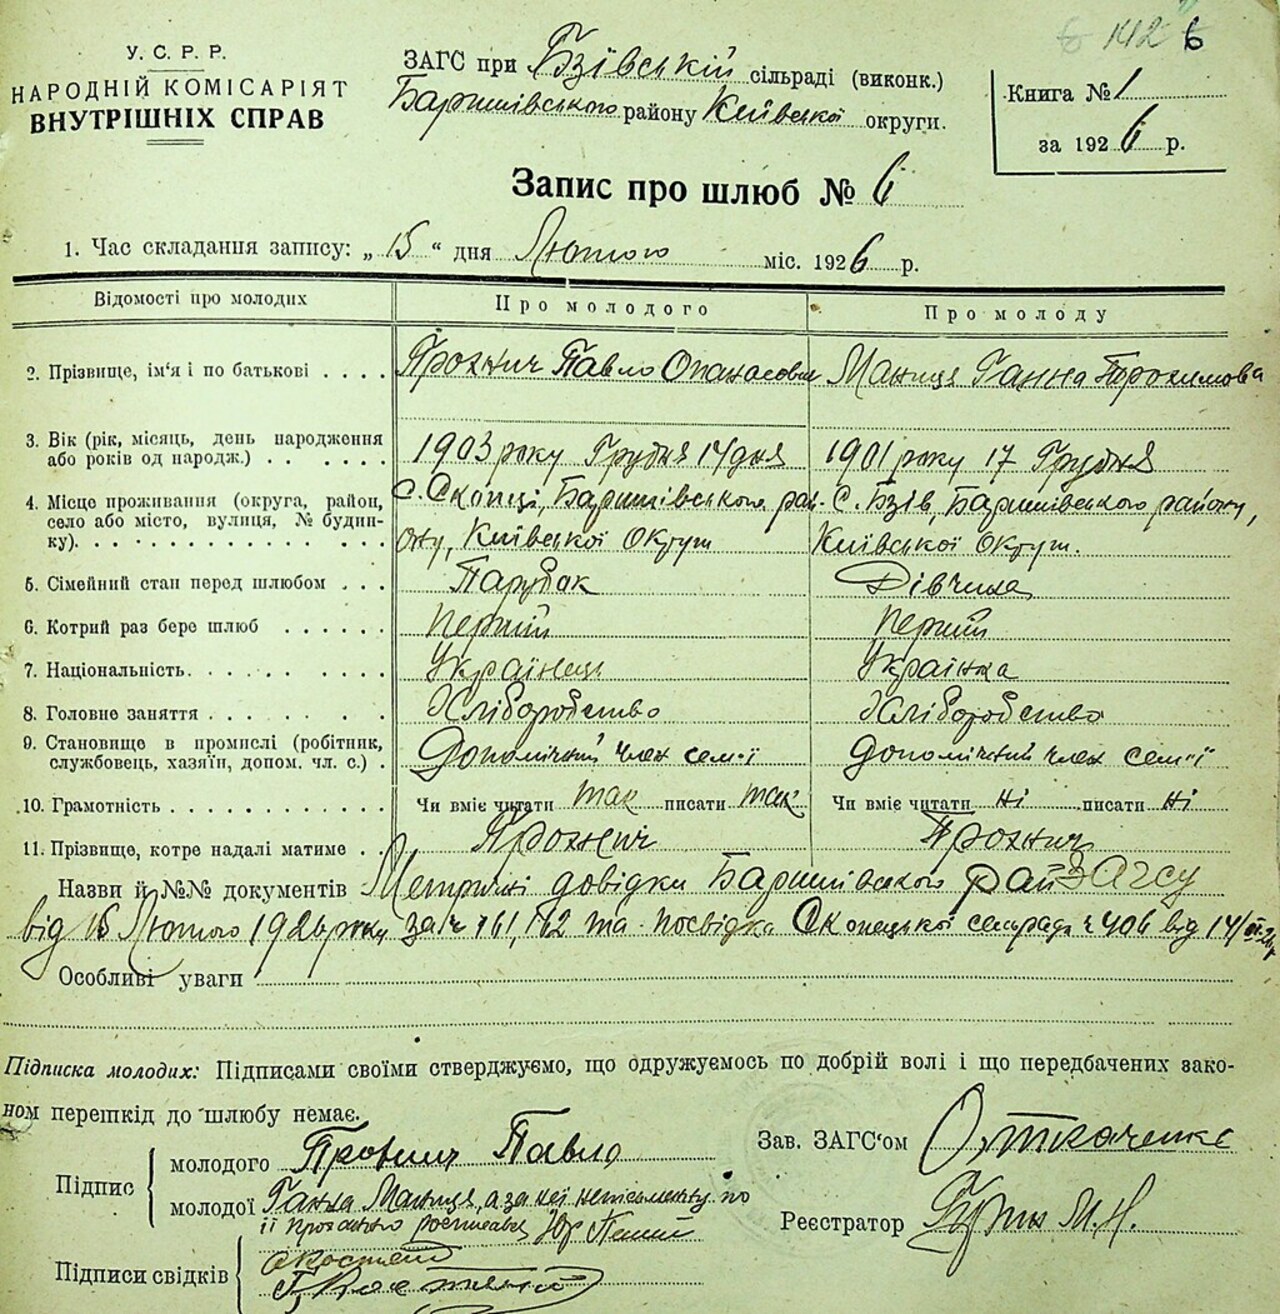 142 6
У. С. Р. Р.
НАРОДНІЙ КОМІСАРІЯТ
ВНУТРІШНІХ СПРАВ
ЗАГС при Бзівській сільраді (виконк.)
Баришівського району Київської округи.
Книга № 1
за 1926 р.
Запис про шлюб № 6
1. Час складання запису: „ 15 “ дня Лютого міс. 1926 р.
Відомості про молодих Про молодого Про молоду
2. Прізвище, ім'я і по батькові . . . . Прохнич Павло Опанасович Маниця Ганна Трохимова
3. Вік (рік, місяць, день народження 1903 року Грудня 14 дня 1901 року 17 Грудня
або років од народж.) . . . . . .
4. Місце проживання (округа, район, с. Скопці, Баришівського рай- С. Бзів, Баришівського району,
село або місто, вулиця, № будин-
ку). . . . . . . . . . . . . . . ону, Київської Округи Київської Округи.
5. Сімейний стан перед шлюбом . . . Парубок Дівчина
6. Котрий раз бере шлюб . . . . . . Перший Перший
7. Національність. . . . . . . . . . Українець Українка
8. Головне заняття . . . . . . . . . Хліборобство Хліборобство
9. Становище в промислі (робітник, Допомічний член сем'ї допомічний член сем'ї
службовець, хазяїн, допом. чл. с.) .
10. Грамотність . . . . . . . . . . . Чи вміє читати так писати так Чи вміє читати ні писати ні
11. Прізвище, котре надалі матиме . . Прохнич Прохнич
Назви й №№ документів Метричні довідки Баришівського райЗАГСу
від 15 Лютого 1926 року за ч 161, 162 та посвідка Скопецької сельради ч 406 від 14/
Особливі уваги
Підписка молодих: Підписами своїми стверджуємо, що одружуємось по добрій волі і що передбачених зако-
ном перешкід до шлюбу немає.
Підпис
молодого Прохнич Павло
молодої Ганна Маниця, а за неї неписьменну по
її проханню росписався
Зав. ЗАГС'ом О. Ткаченко
Реєстратор М. Н.
Підписи свідків